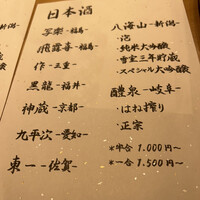 日本酒
写楽-福島-
飛露喜-福島-
作-三重-
黒龍-福井-
神蔵-京都-
九平次-愛知-
東一-佐賀-
八海山-新潟-
・泡
・純米大吟醸
・雪室三年貯蔵
・スペシャル大吟醸
醴泉-岐阜-
・はね搾り
・正宗
*半合 1.000円〜
*一合 1.500円〜